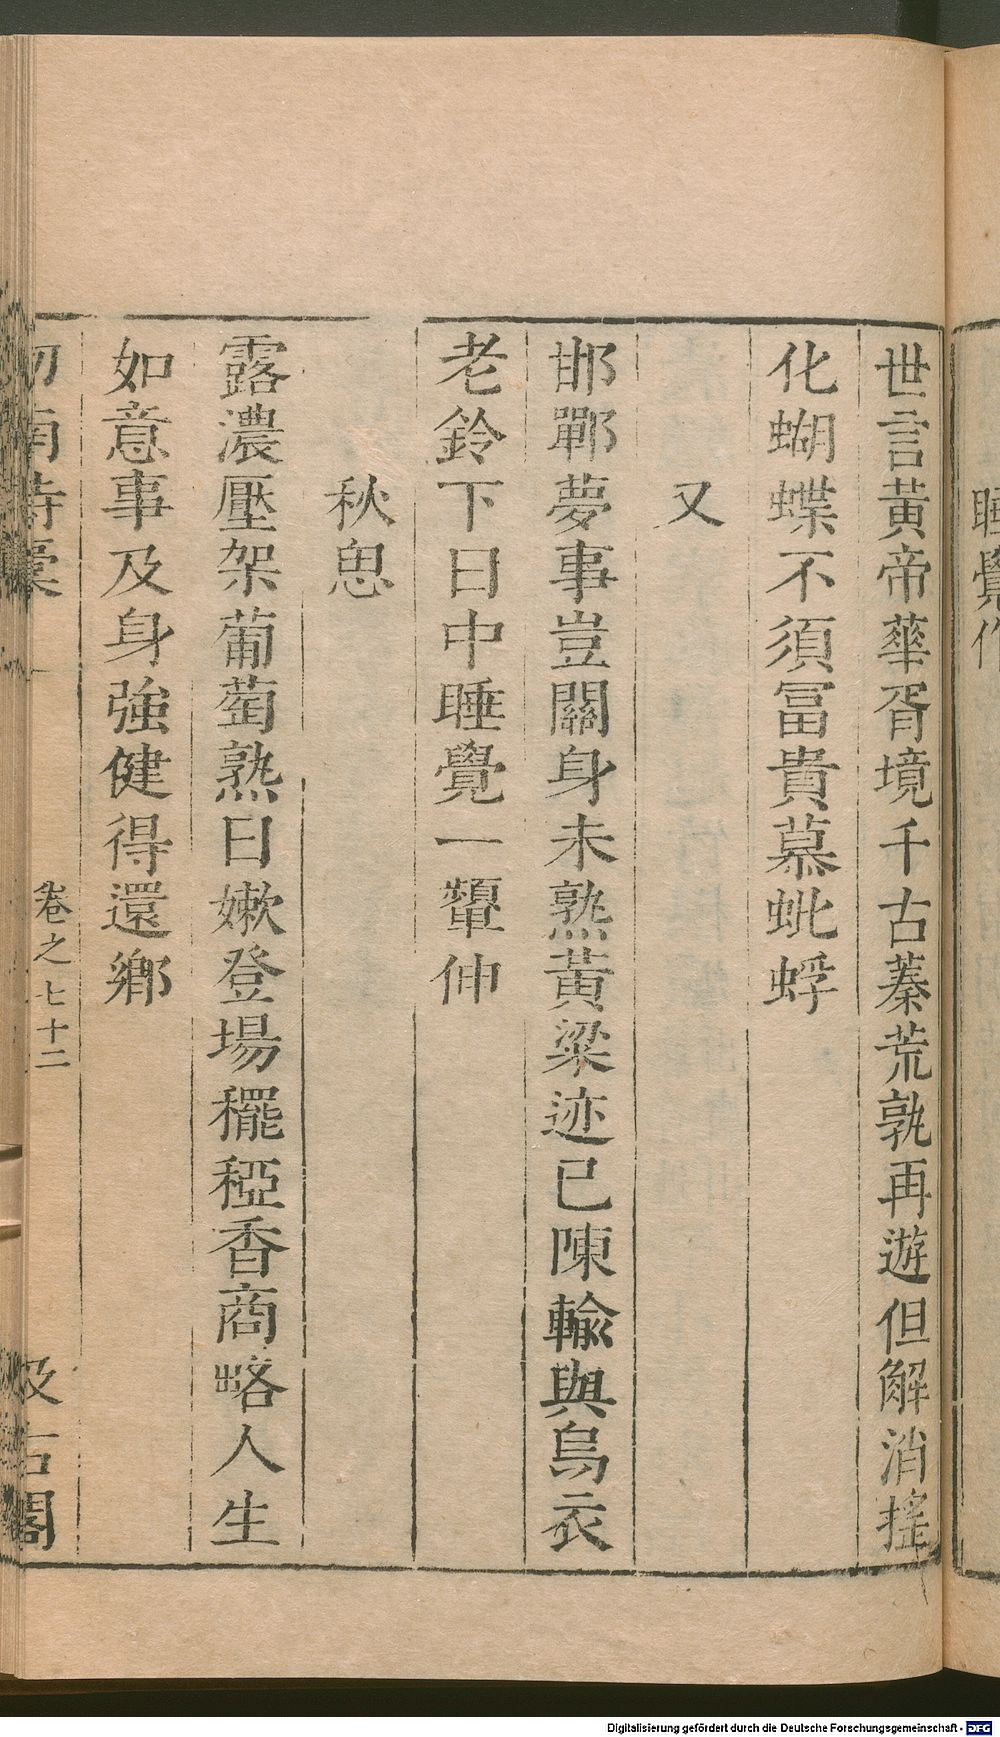 睡覺作
世言黃帝華胥境千古蓁荒孰再遊但解消搖
化蝴蝶不須冨貴慕蚍蜉
又
邯鄲夢事豈關身未熟黃粱迹已陳輸與烏衣
老鈴下日中睡覺一顰伸
秋思
露濃壓架葡萄熟日嫰登場䆉稏香商略人生
如意事及身強健得還鄉
劒南詩稾
卷之七十二
汲古閣
Digitalisierung gefördert durch die Deutsche Forschungsgemeinschaft - DFG